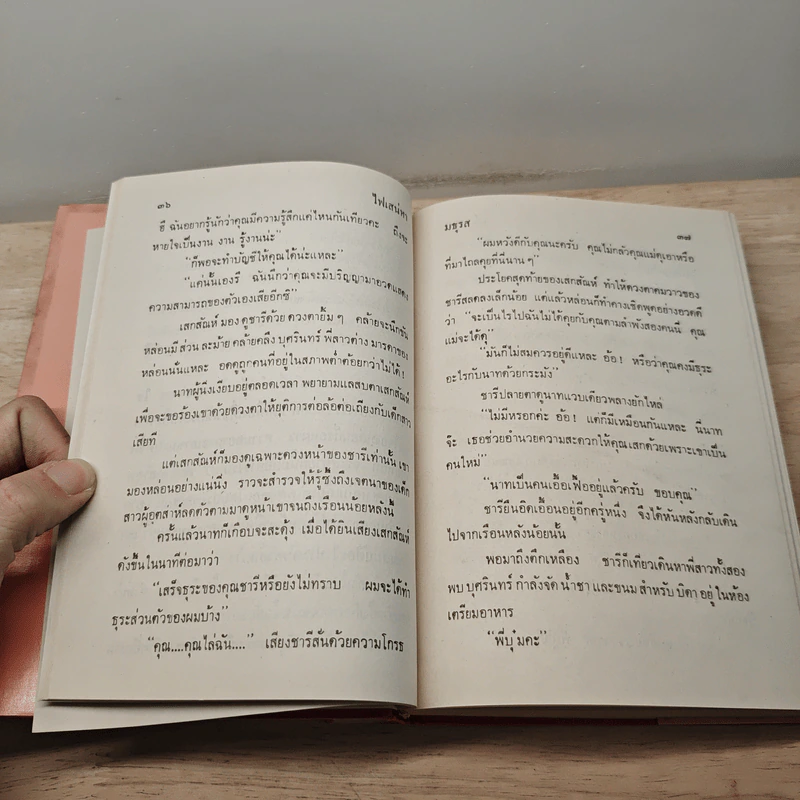 ๓๖ ไฟเสน่หา
ฮึ ฉันอยากรู้นักว่าคุณมีความรู้สึกแค่ไหนกันเทียวคะ ถึงจะ
หายใจเป็นงาน งาน รู้งานน่ะ”
“ก็พอจะทำบัญชีให้คุณได้น่ะแหละ”
“แค่นั้นเองรึ ฉันนึกว่าคุณจะมีปริญญามาอวดแสดง
ความสามารถของตัวเองเสียอีกซิ”
เสกสัณห์ มอง ดูชารีด้วย ดวงตายิ้ม ๆ คล้ายจะนึกขัน
หล่อนมี ส่วน ละม้าย คล้ายคลึง บุศรินทร์ พี่สาวต่าง มารดาของ
หล่อนนั่นแหละ อดดูถูกคนที่อยู่ในสภาพต่ำต้อยกว่าไม่ได้ !
นาทผู้นั่งเงียบอยู่ตลอดเวลา พยายามแลสบตาเสกสัณห์
เพื่อจะขอร้องเขาด้วยดวงตาให้ยุติการต่อล้อต่อเถียงกับเด็กสาว
เสียที
แต่เสกสัณห์ก็มองดูเฉพาะดวงหน้าของชารีเท่านั้น เขา
มองหล่อนอย่างแน่นิ่ง ราวจะสำรวจให้รู้ซึ้งถึงเจตนาของเด็ก
สาวผู้อุตส่าห์ลดตัวตามมาดูหน้าเขาจนถึงเรือนน้อยหลังนี้
ครั้นแล้วนาทก็เกือบจะสะดุ้ง เมื่อได้ยินเสียงเสกสัณห์
ดังขึ้นในนาทีต่อมาว่า
“เสร็จธุระของคุณชารีหรือยังไม่ทราบ ผมจะได้ทำ
ธุระส่วนตัวของผมบ้าง”
“คุณ....คุณไล่ฉัน....” เสียงชารีสั่นด้วยความโกรธ
มธุรส ๓๗
“ผมหวังดีกับคุณนะครับ คุณไม่กลัวคุณแม่ดุเอาหรือ
ที่มาไถลคุยที่นี่นาน ๆ”
ประโยคสุดท้ายของเสกสัณห์ ทำให้ดวงตาคมวาวของ
ชารีสลดลงเล็กน้อย แต่แล้วหล่อนก็ทำคางเชิดพูดอย่างอวดดี
ว่า “จะเป็นไรไปฉันไม่ได้คุยกับคุณตามลำพังสองคนนี่ คุณ
แม่จะได้ดุ”
“มันก็ไม่สมควรอยู่ดีแหละ อ้อ ! หรือว่าคุณคงมีธุระ
อะไรกับนาทด้วยกระมัง”
ชารีปลายตาดูนาทแวบเดียวพลางยักไหล่
“ไม่มีหรอกค่ะ อ้อ ! แต่ก็มีเหมือนกันแหละ นี่นาท
จ๊ะ เธอช่วยอำนวยความสะดวกให้คุณเสกด้วยเพราะเขาเป็น
คนใหม่”
“นาทเป็นคนเอื้อเฟื้ออยู่แล้วครับ ขอบคุณ”
ชารียืนอิดเอื้อนอยู่อีกครู่หนึ่ง จึงได้หันหลังกลับเดิน
ไปจากเรือนหลังน้อยนั้น
พอมาถึงตึกเหลือง ชารีก็เที่ยวเดินหาพี่สาวทั้งสอง
พบ บุศรินทร์ กำลังจัด น้ำชา และขนม สำหรับ บิดา อยู่ ในห้อง
เตรียมอาหาร
“พี่บุ๋มคะ”